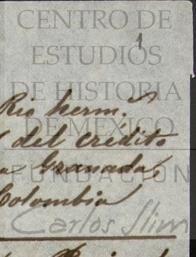 CENTRO DE
ESTUDIOS
1
DE HISTORIA
Rio herm.
DE MÉXICO
del credito
Granada
FUNDACIÓN
Colombia
Carlos Slim